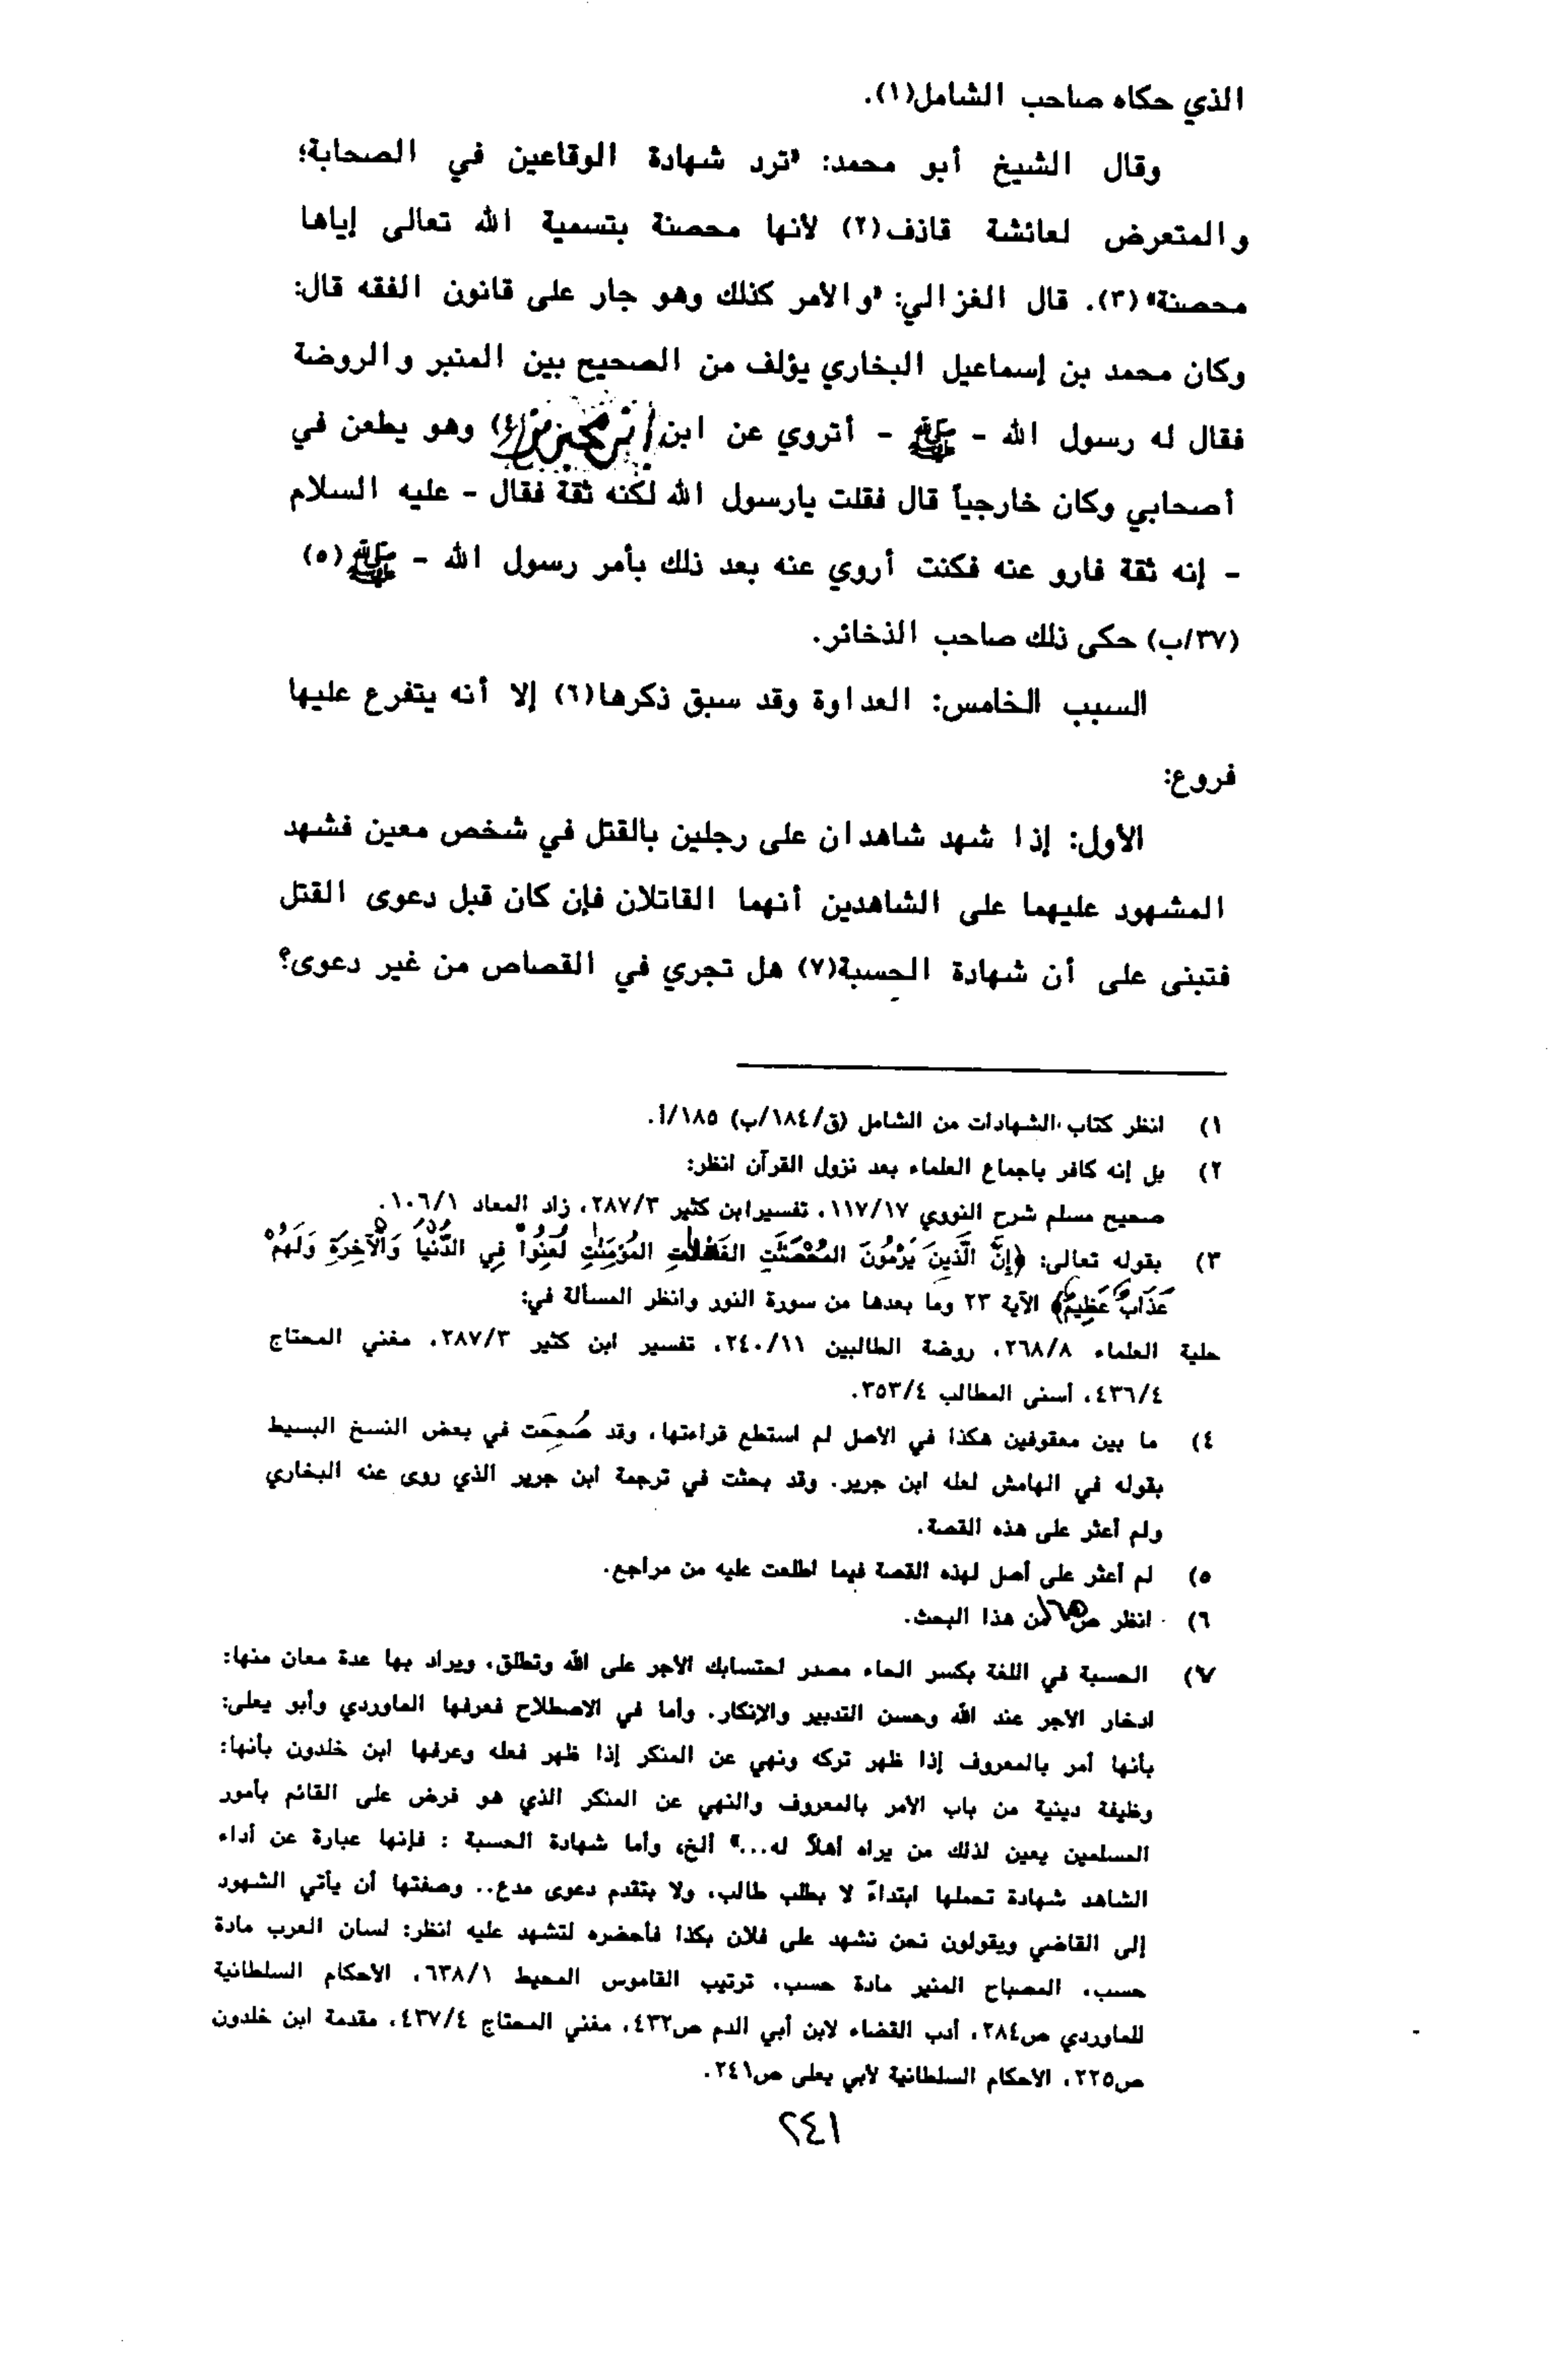 الذي حكاه صاحب الشامل(١).
وقال الشيخ أبو محمد: "ترد شهادة الوقاعين في الصحابة؛
والمتعرض لعائشة قاذف(٢) لأنها محصنة بتسمية الله تعالى إياها
محصنة"(٣). قال الغزالي: "والأمر كذلك وهو جار على قانون الفقه قال:
وكان محمد بن إسماعيل البخاري يؤلف من الصحيح بين المنبر والروضة
فقال له رسول الله - ﷺ - أتروي عن ابن (٤) وهو يطعن في
أصحابي وكان خارجياً قال فقلت يارسول الله لكنه ثقة فقال - عليه السلام
- إنه ثقة فارو عنه فكنت أروي عنه بعد ذلك بأمر رسول الله - ﷺ(٥)
(٣٧/ب) حكى ذلك صاحب الذخائر.
السبب الخامس: العداوة وقد سبق ذكرها(٦) إلا أنه يتفرع عليها
فروع:
الأول: إذا شهد شاهدان على رجلين بالقتل في شخص معين فشهد
المشهود عليهما على الشاهدين أنهما القاتلان فإن كان قبل دعوى القتل
فتبنى على أن شهادة الحسبة(٧) هل تجري في القصاص من غير دعوى؟
١) انظر كتاب الشهادات من الشامل (ق/١٨٤/ب) ١٨٥/أ.
٢) بل إنه كافر باجماع العلماء بعد نزول القرآن انظر:
صحيح مسلم شرح النووي ١١٧/١٧، تفسيرابن كثير ٢٨٧/٣، زاد المعاد ١٠٦/١.
٣) بقوله تعالى: ﴿إِنَّ الَّذِينَ يَرْمُونَ المُحْصَنَٰتِ الغَٰفِلَٰتِ المُؤمِنَٰتِ لُعِنُوا فِي الدُّنْيَا وَالْآخِرَةِ وَلَهُمْ
عَذَابٌ عَظِيمٌ﴾ الآية ٢٣ وما بعدها من سورة النور وانظر المسألة في:
حلية العلماء ٢٦٨/٨، روضة الطالبين ٢٤٠/١١، تفسير ابن كثير ٢٨٧/٣، مغني المحتاج
٤٣٦/٤، أسنى المطالب ٣٥٣/٤.
٤) ما بين معقوفين هكذا في الأصل لم استطع قراءتها، وقد صُححَت في بعض النسخ البسيط
بقوله في الهامش لعله ابن جرير. وقد بحثت في ترجمة ابن جرير الذي روى عنه البخاري
ولم أعثر على هذه القصة.
٥) لم أعثر على أصل لهذه القصة فيما اطلعت عليه من مراجع.
٦) انظر ص من هذا البحث.
٧) الحسبة في اللغة بكسر الحاء مصدر احتسابك الأجر على الله وتطلق، ويراد بها عدة معان منها:
ادخار الأجر عند الله وحسن التدبير والإنكار. وأما في الاصطلاح فعرفها الماوردي وأبو يعلى:
بأنها أمر بالمعروف إذا ظهر تركه ونهي عن المنكر إذا ظهر فعله وعرفها ابن خلدون بأنها:
وظيفة دينية من باب الأمر بالمعروف والنهي عن المنكر الذي هو فرض على القائم بأمور
المسلمين يعين لذلك من يراه أهلاً له..." ألخ، وأما شهادة الحسبة : فإنها عبارة عن أداء
الشاهد شهادة تحملها ابتداءً لا بطلب طالب، ولا بتقدم دعوى مدع.. وصفتها أن يأتي الشهود
إلى القاضي ويقولون نحن نشهد على فلان بكذا فأحضره لنشهد عليه انظر: لسان العرب مادة
حسب، المصباح المنير مادة حسب، ترتيب القاموس المحيط ٦٣٨/١، الأحكام السلطانية
للماوردي ص٢٨٤، أدب القضاء لابن أبي الدم ص٤٣٢، مغني المحتاج ٤٣٧/٤، مقدمة ابن خلدون
ص٢٢٥، الأحكام السلطانية لأبي يعلى ص٢٤١.
٢٤١